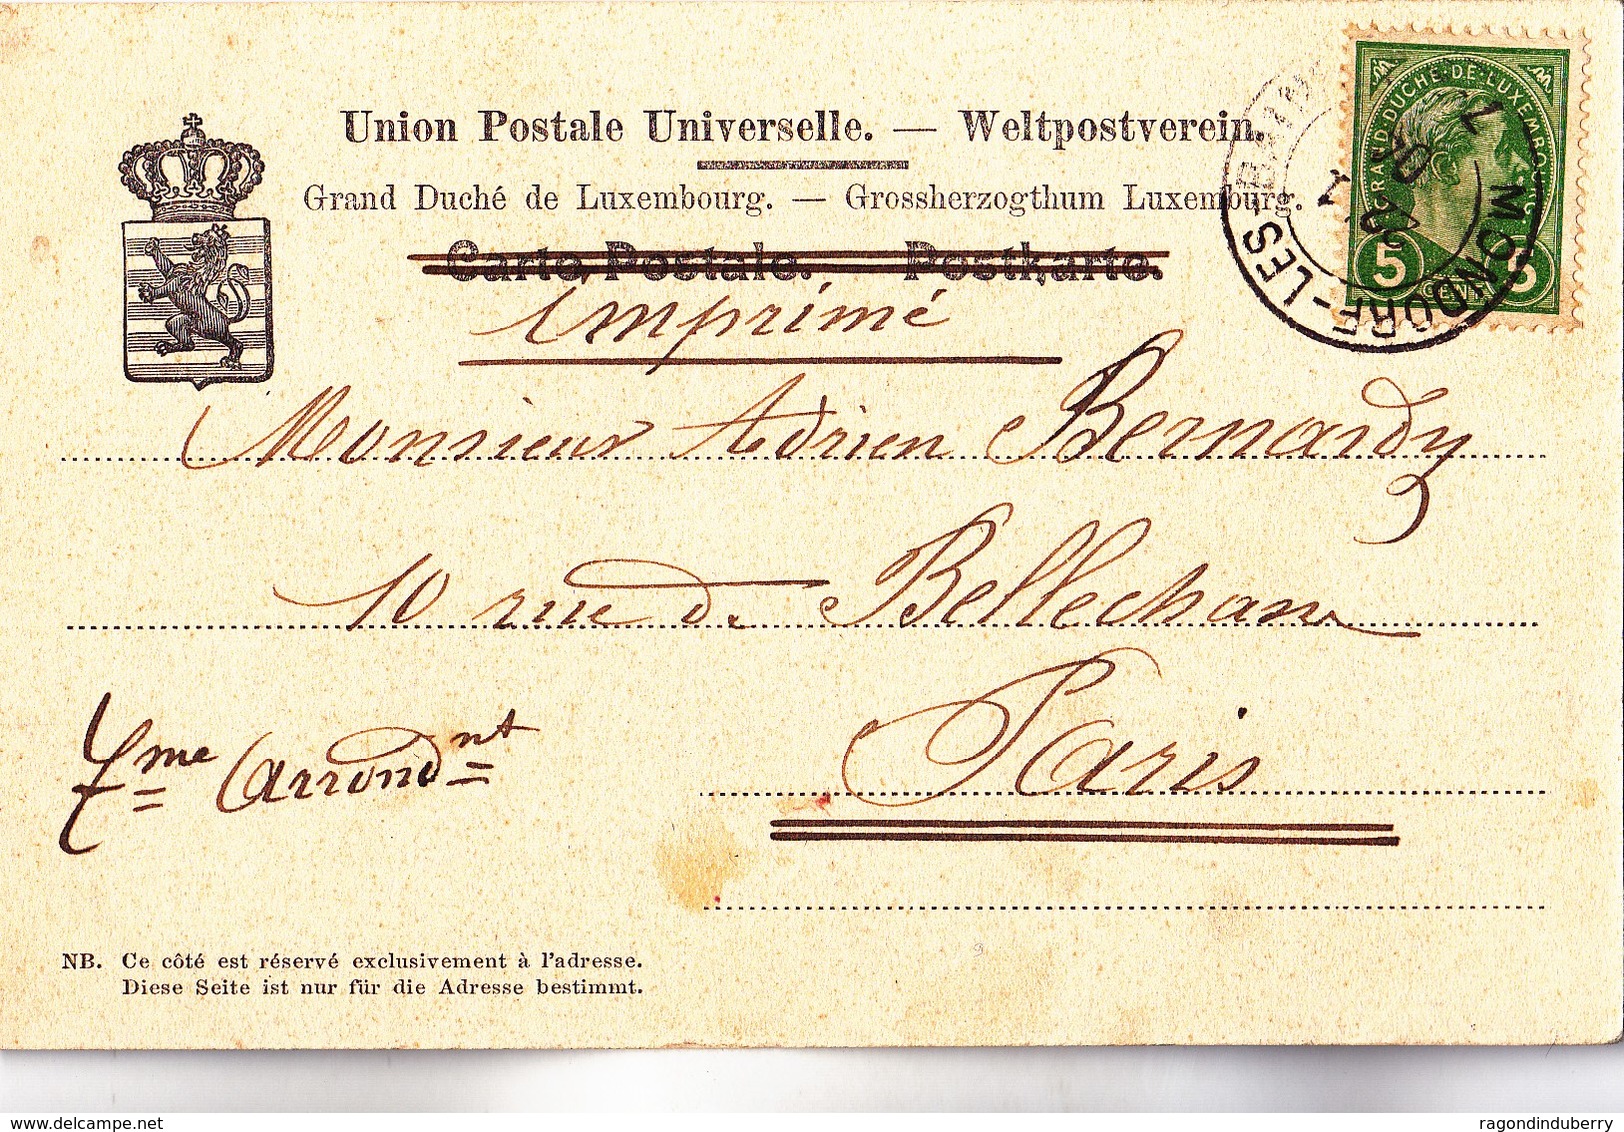 Union Postale Universelle. — Weltpostverein.
Grand Duché de Luxembourg. — Grossherzogthum Luxemburg.
Carte Postale. Postkarte.
Imprimé
GRAND-DUCHÉ-DE-LUXEMBOURG
5 5
MONDORF-LES-BAINS
Monsieur Adrien Bernardy
10 rue de Bellechasse
Paris
7me Arrondnt
NB. Ce côté est réservé exclusivement à l'adresse.
Diese Seite ist nur für die Adresse bestimmt.
delcampe.net
ragondinduberry